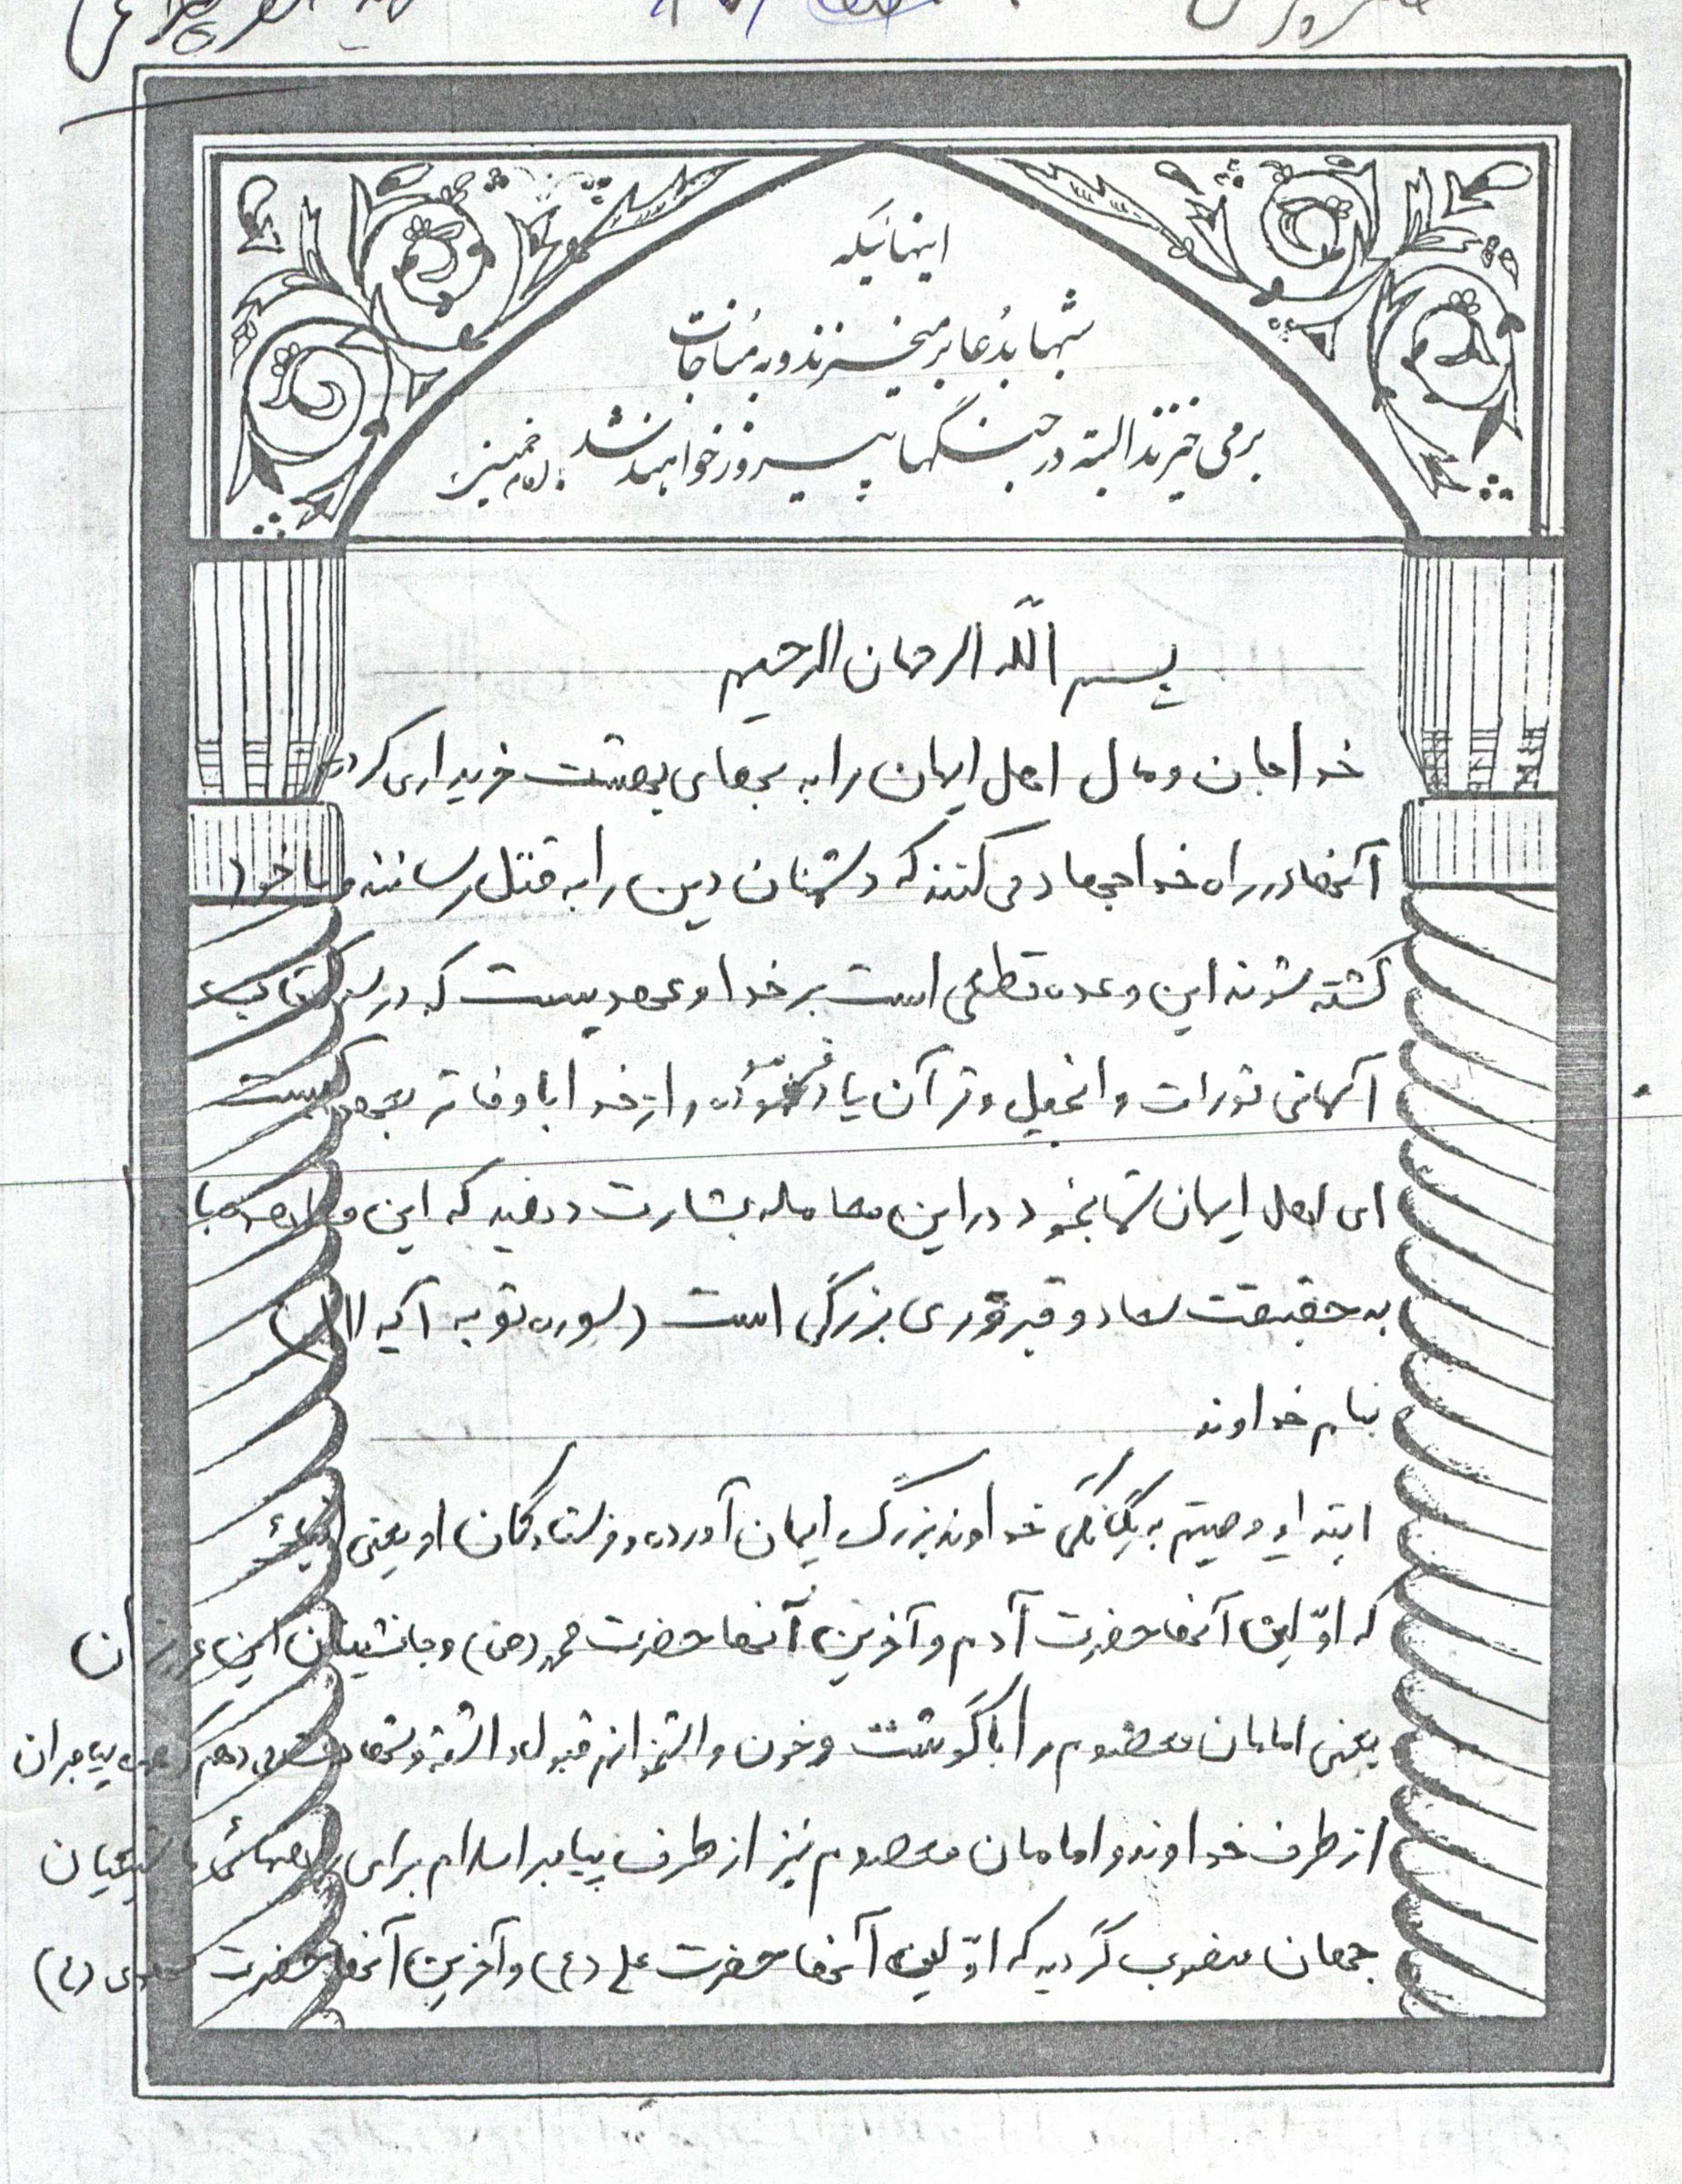 اینهائیکه
شبها بدُعا برمیخیزند و به مُناجات
برمی خیزند البته در جنگها پیروز خواهند شد امام خمینی
بسم اللّه الرحمان الرحیم
خدا جان و مال اهل ایمان را به بهای بهشت خریداری کرد
آنها در راه خدا جهاد می کنند که دشمنان دین را به قتل رسانند و یا خود
کشته شوند این وعده قطعی است بر خدا و عهدیست که در سه کتاب
آسمانی تورات و انجیل و قرآن یاد فرموده و از خدا باوفاتر بعهد کیست
ای اهل ایمان شما بخود در این معامله بشارت دهید که این معاهده با
به حقیقت سعاد و فیروزی بزرگی است (سوره توبه آیه ۱۱۱)
بنام خداوند
ابتدای وصیتم به یگانگی خداوند بزرگ ایمان آورده و فرستادگان او یعنی انبیاء
که اوّلین آنها حضرت آدم و آخرین آنها حضرت محمد (ص) و جانشینان این عزیزان
یعنی امامان معصوم را با گوشت و خون و استخوانم قبول داشته و شهادت می دهم که همه پیامبران
از طرف خداوند و امامان معصوم نیز از طرف پیامبر اسلام برای راهنمائی ما شیعیان
جهان منصوب گردید که اوّلین آنها حضرت علی (ع) و آخرین آنها حضرت مهدی (ع)